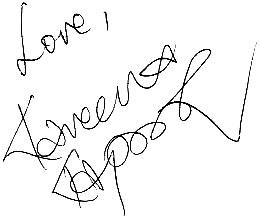 Love,
Kareena
Kapoor